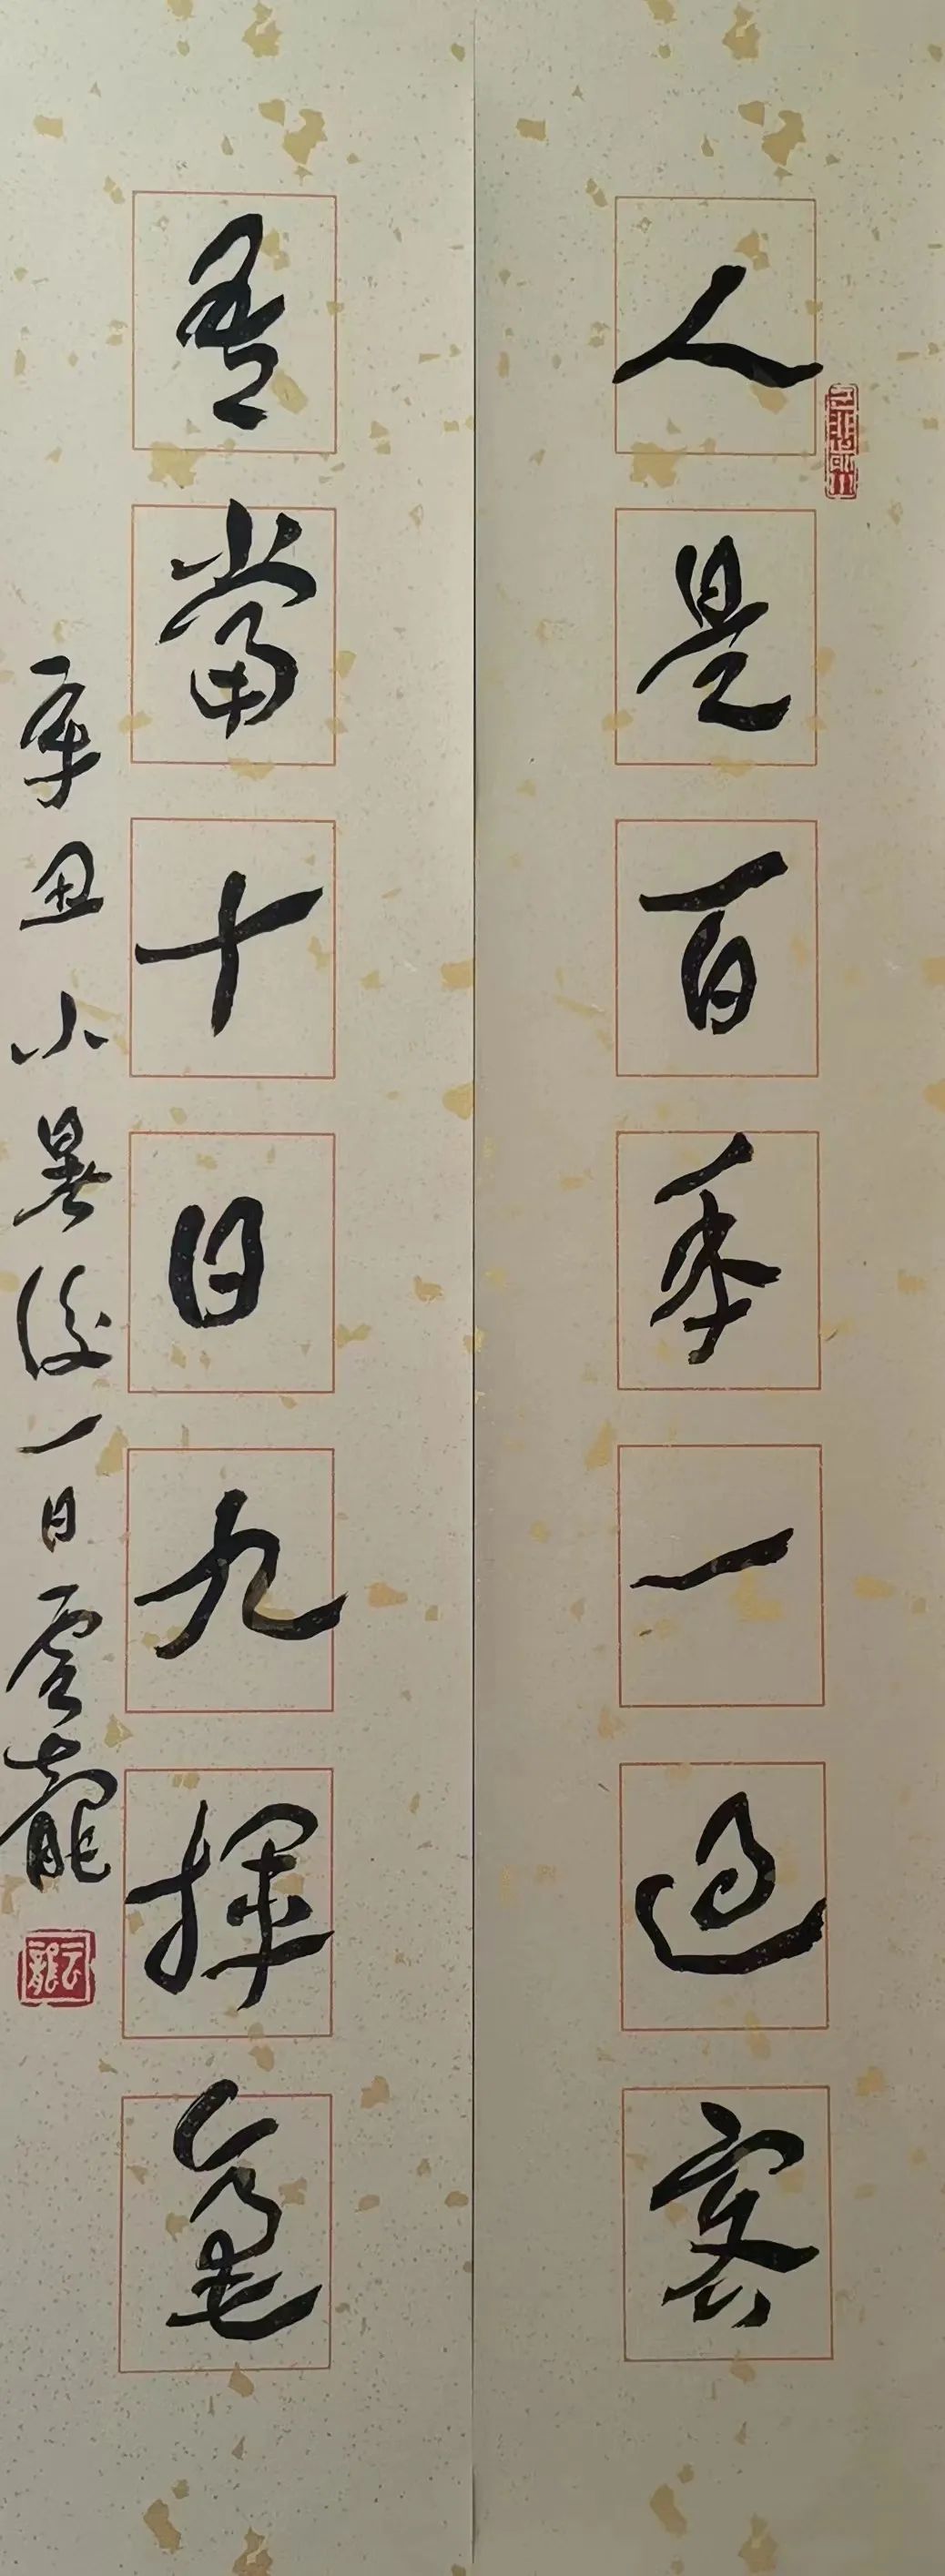 人是百年一過客
吾當十日九揮毫
辛丑小暑後一日雲龍
雲龍